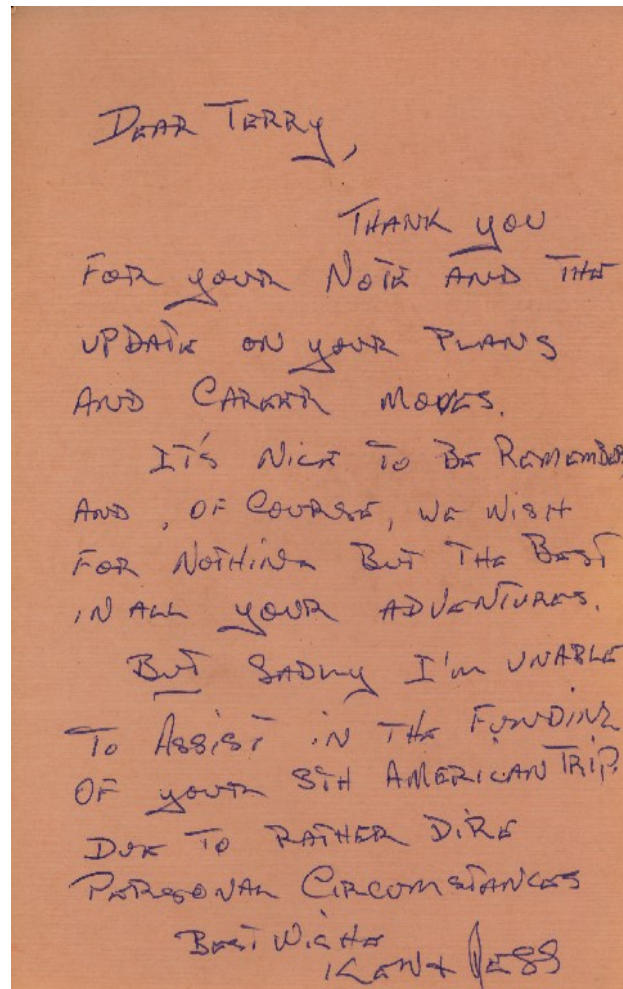 DEAR TERRY,
THANK YOU
FOR YOUR NOTE AND THE
UPDATE ON YOUR PLANS
AND CAREER MOVES.
IT'S NICE TO BE REMEMBER
AND, OF COURSE, WE WISH
FOR NOTHING BUT THE BEST
IN ALL YOUR ADVENTURES.
BUT SADLY I'M UNABLE
TO ASSIST IN THE FUNDING
OF YOUR STH AMERICAN TRIP.
DUE TO RATHER DIRE
PERSONAL CIRCUMSTANCES
BEST WISHES
KEN & JESS